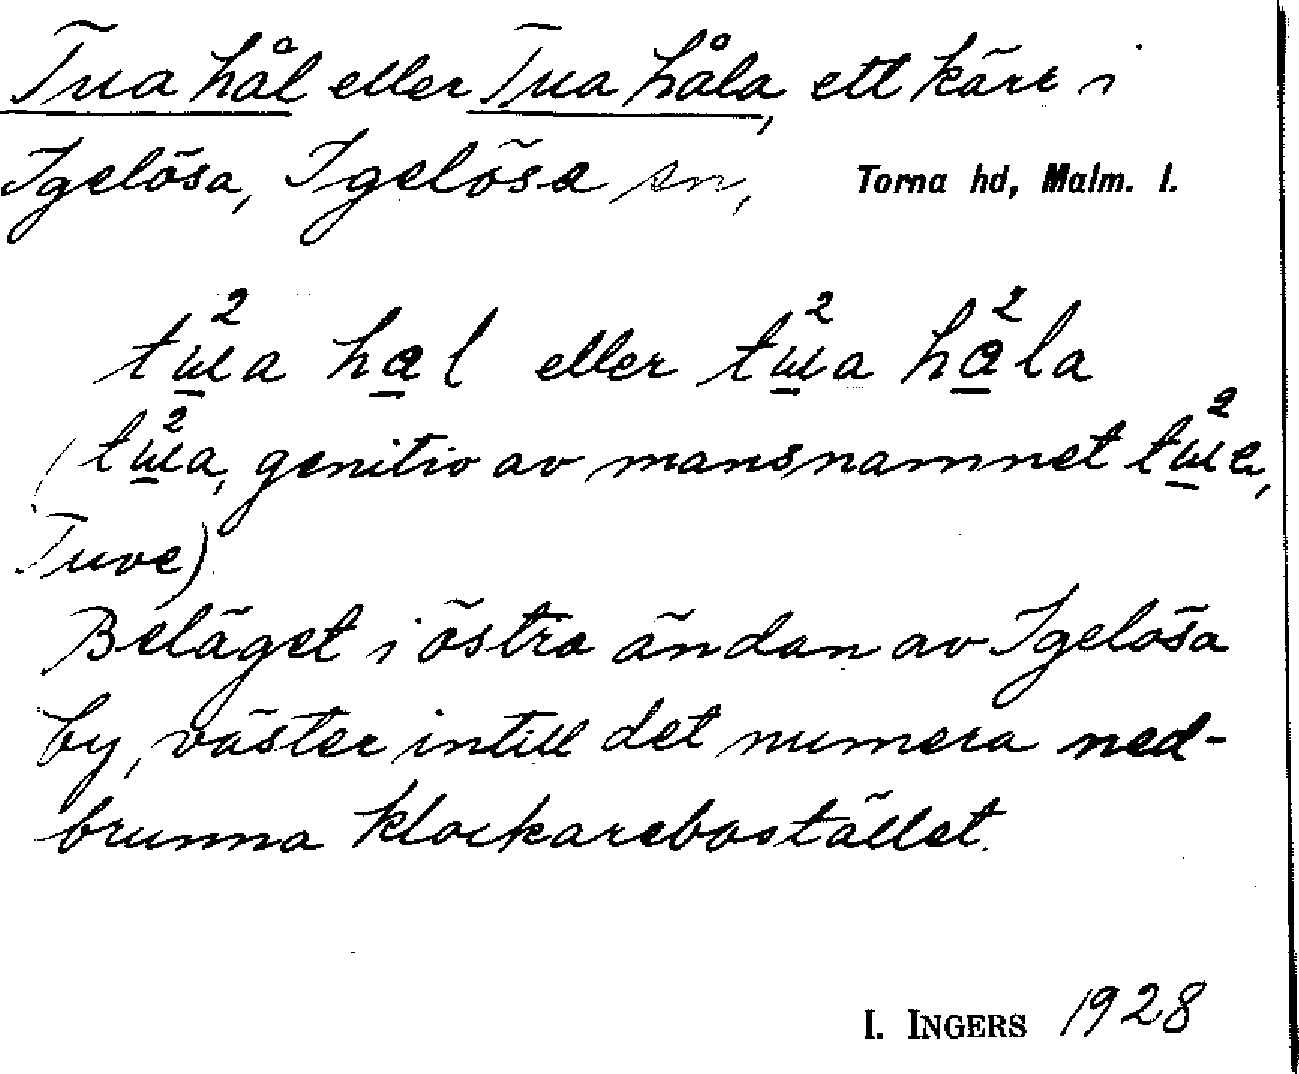 Tua hål eller Tua håla, ett kärr i
Igelösa, Igelösa sn, Torna hd, Malm. l.
tɯ²a hal eller tɯ²a ha²la
(tɯ²a, genitiv av mansnamnet tɯ²e,
Tuve)
Beläget i östra ändan av Igelösa
by, väster intill det numera ned-
brunna klockarebostället.
I. INGERS 1928